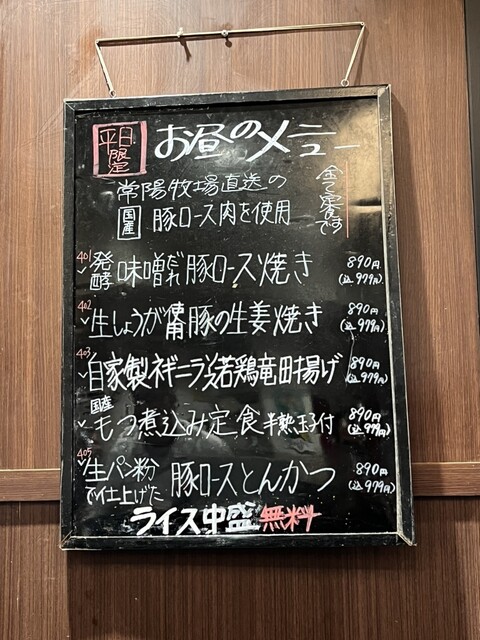 平日限定
お昼のメニュー
全て定食です
常陽牧場直送の
国産 豚ロース肉を使用
401 発酵味噌だれ豚ロース焼き 890円(込979円)
402 生しょうが使用豚の生姜焼き 890円(込979円)
403 自家製ネギニラダレ若鶏竜田揚げ 890円(込979円)
国産もつ煮込み定食半熟玉子付 890円(込979円)
405 生パン粉で仕上げた豚ロースとんかつ 890円(込979円)
ライス中盛無料